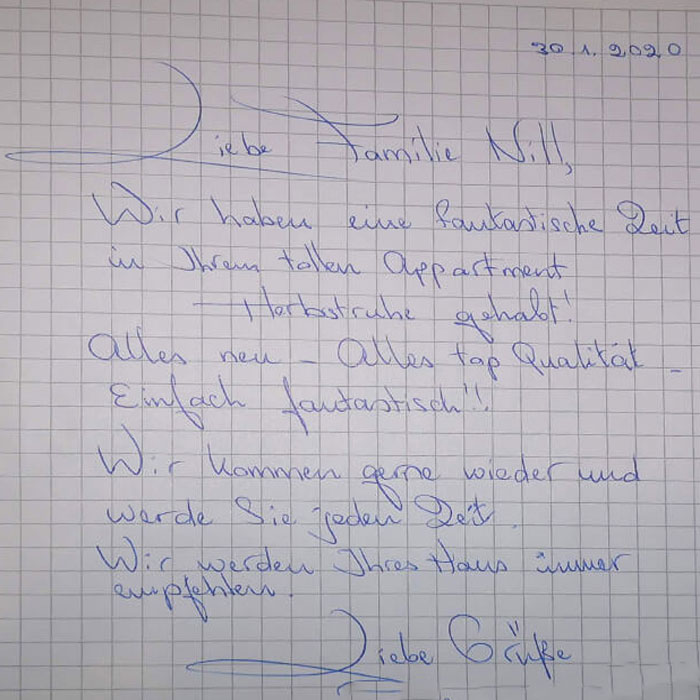 30.1.2020
Liebe Familie Nill,
Wir haben eine fantastische Zeit
in Ihrem tollen Appartment
Herbstruhe gehabt!
Alles neu - Alles top Qualität -
Einfach fantastisch!!
Wir kommen gerne wieder und
werde Sie jeden Zeit
Wir werden Ihres Haus immer
empfehlen.
Liebe Grüße